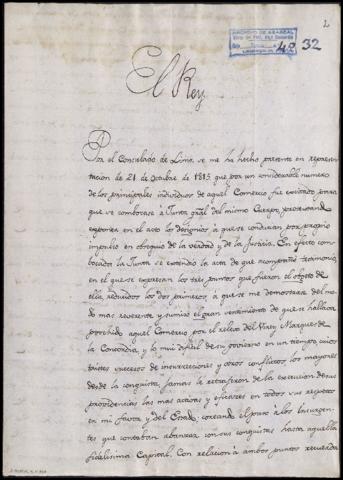 2
ARCHIVO DE ABASCAL
48 32
El Rey.
Por el Consulado de Lima se me ha hecho presente en represen-
tacion de 21 de Octubre de 1815 que por un considerable numero
de los principales individuos de aquel Comercio fue excitado para
que se combocase à Junta gral del mismo Cuerpo, procurando
exponer en el acto los designios à que se conducian por proprio
impulso en obsequio de la verdad y de la Justicia. Con efecto com-
bocada la Junta se extendió la acta de que acompañó testimonio,
en el que se expresan los tres puntos que fueron el objeto de
ella, reducidos los dos primeros, à que se me demostrara del mo-
do mas reverente y sumiso el gran sentimiento de que se hallava
posehido aquel Comercio por el relevo del Virey Marques de
la Concordia, y lo mui dificil de su govierno en un tiempo, cuios
tristes sucesos de insurrecciones y otros conflictos los mayores
desde la conquista, jamas la retraxeron de la execucion de sus
providencias las mas activas y eficaces en todos sus respectos
en mi favor y del Estado; cortando el paso à los Insurgen-
tes que contaban abanzar con sus conquistas hasta aquella
fidelisima Capital. Con relacion à ambos puntos recuerda